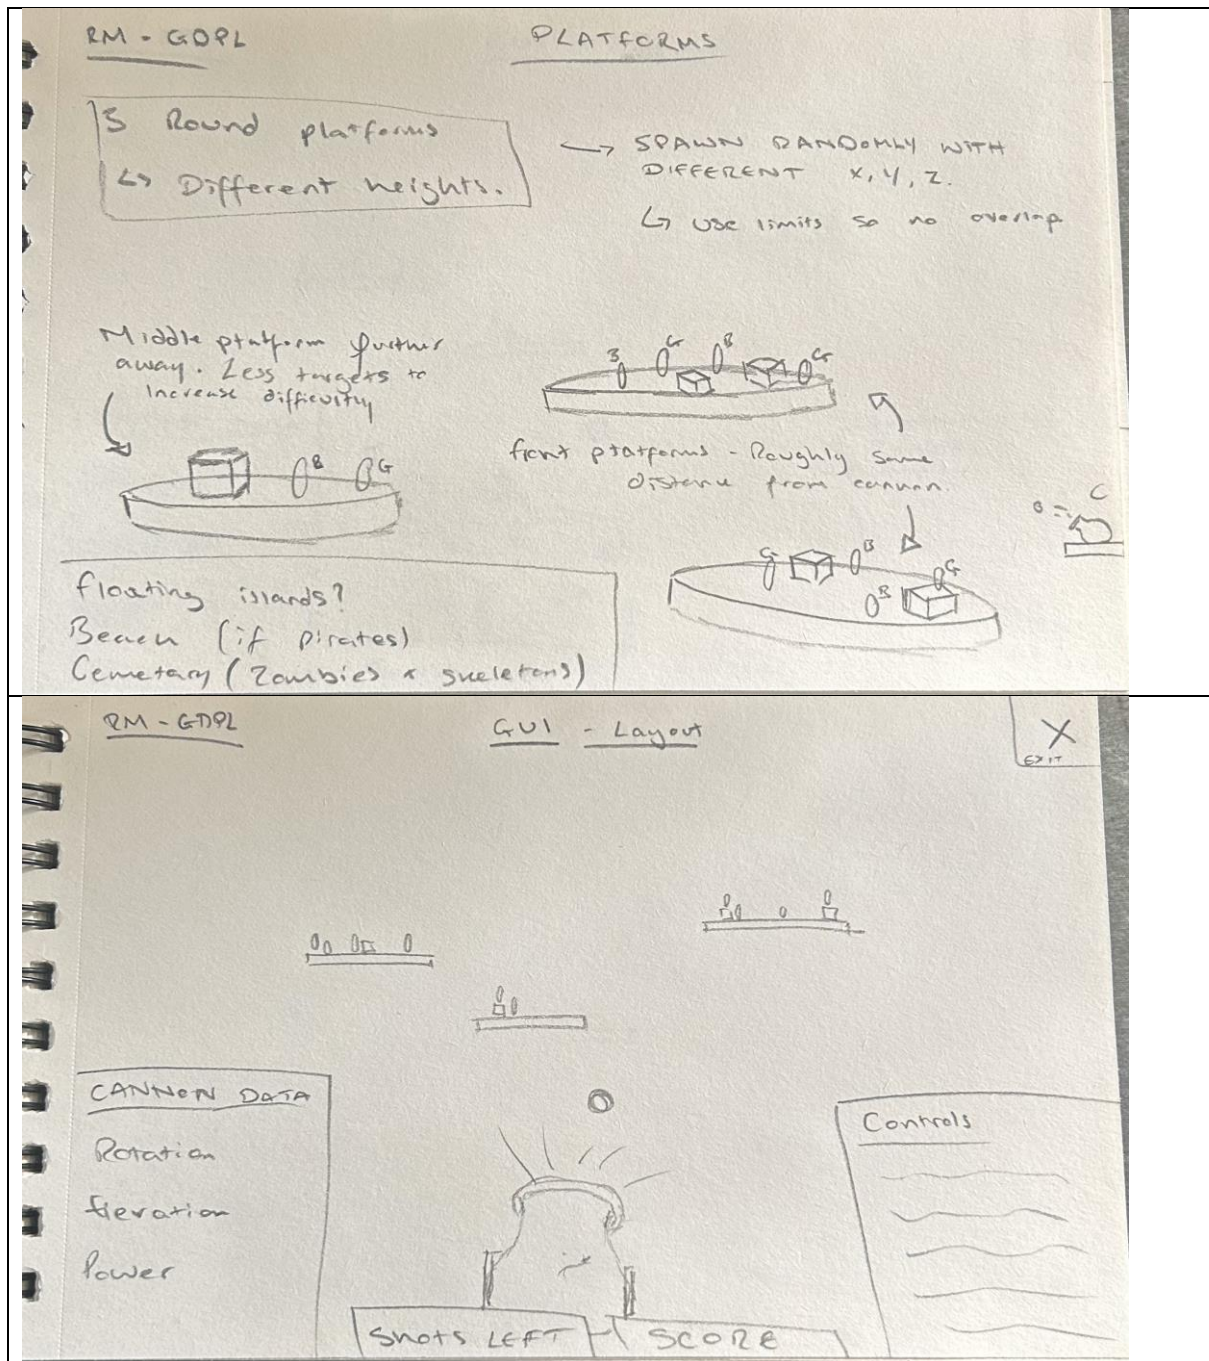 RM - GDPL
PLATFORMS
3 Round platforms
↳ Different heights.
→ SPAWN RANDOMLY WITH
DIFFERENT X, Y, Z.
↳ USE limits so no overlap
Middle platform further
away. Less targets to
Increase difficulty
B
G
B
G
B
G
front platforms - Roughly same
distance from cannon.
C
G
B
B
G
floating islands?
Beach (if pirates)
Cemetary (Zombies & skeletons)
RM - GDPL
GUI - Layout
X
EXIT
CANNON DATA
Rotation
Elevation
Power
Controls
Shots LEFT
SCORE